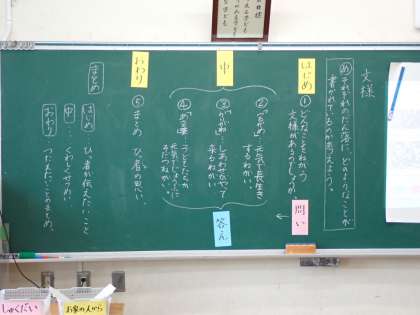 文様
め それぞれのだん落に、どのようなことが
書かれているのか考えよう。
はじめ
① どんなことをねがう
文様があるのでしょうか
問い
中
② 「つるかめ」元気で長生き
するねがい。
③ しあわせがやって
来るねがい
④ 「あさの葉」子どもたちが
元気で
そだつねがい。
答え
おわり
⑤ まとめ ひっ者の思い。
まとめ
はじめ ひっ者が伝えたいこと
中 … くわしくせつ明
おわり つたえたいことのまとめ。
しゅくだい
お家の人から